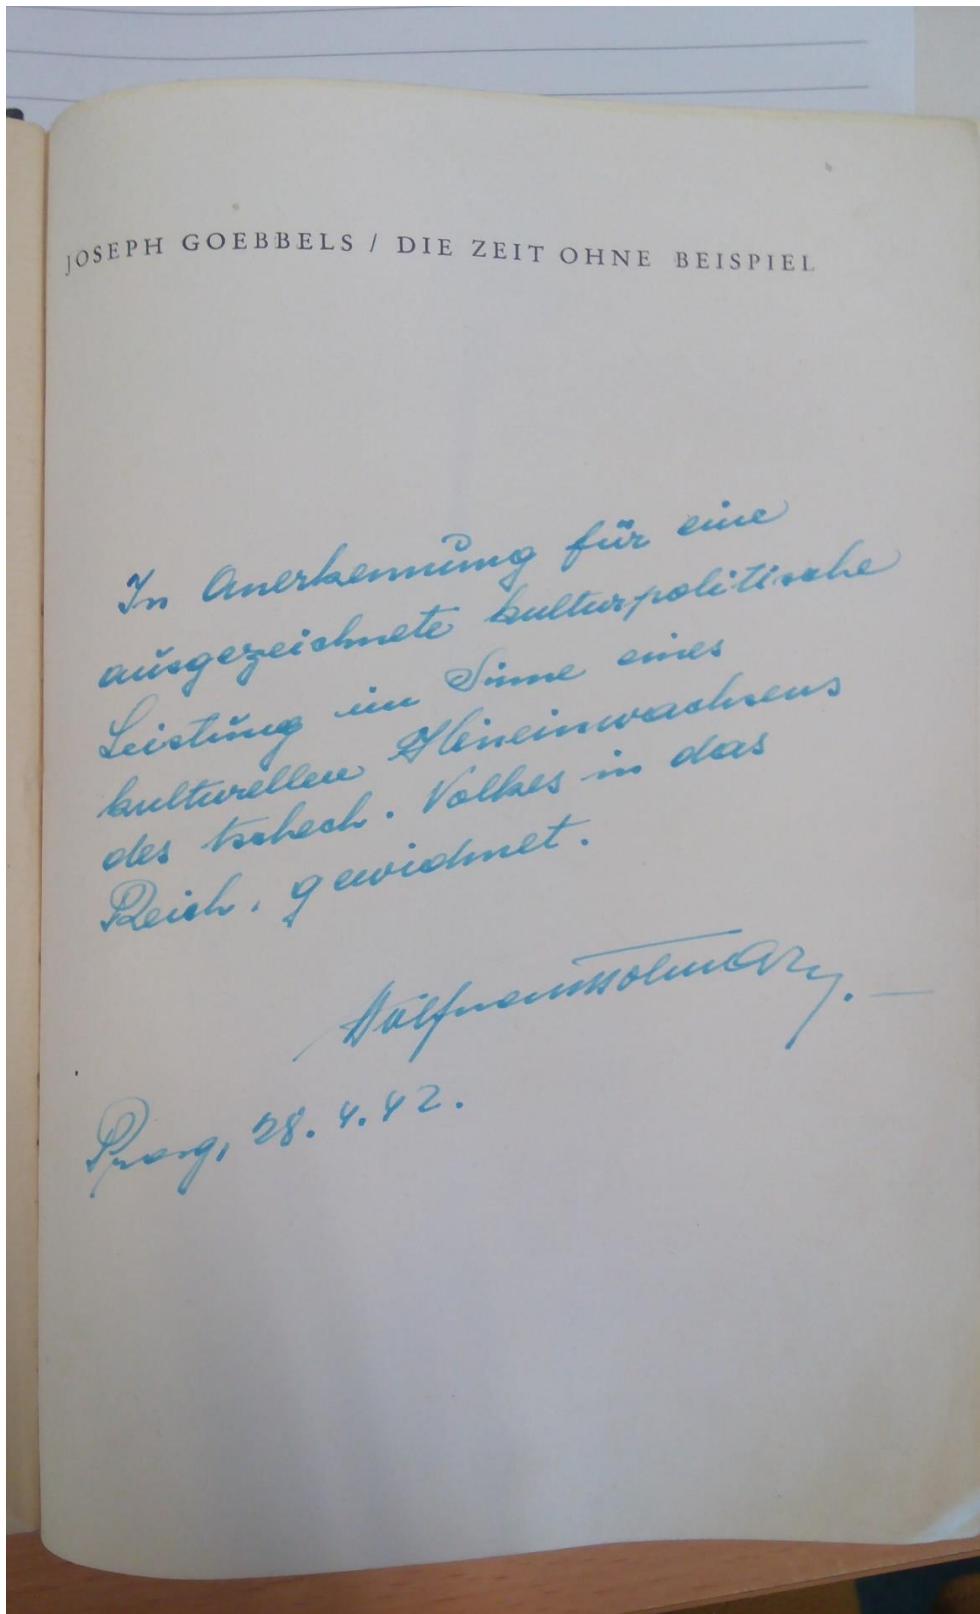 JOSEPH GOEBBELS / DIE ZEIT OHNE BEISPIEL
In Anerkennung für eine
ausgezeichnete kulturpolitische
Leistung im Sinne eines
kulturellen Hineinwachsens
des tschech. Volkes in das
Reich, gewidmet.
Prag, 28. 4. 42.